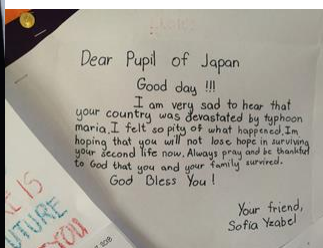 Dear Pupil of Japan
Good day !!!
I am very sad to hear that
your country was devastated by typhoon
maria. I felt so pity of what happened. Im
hoping that you will not lose hope in surviving
your second life now. Always pray and be thankful
to God that you and your family survived.
God Bless You !
Your friend,
Sofia Yeabel
E IS
UTURE
YOU